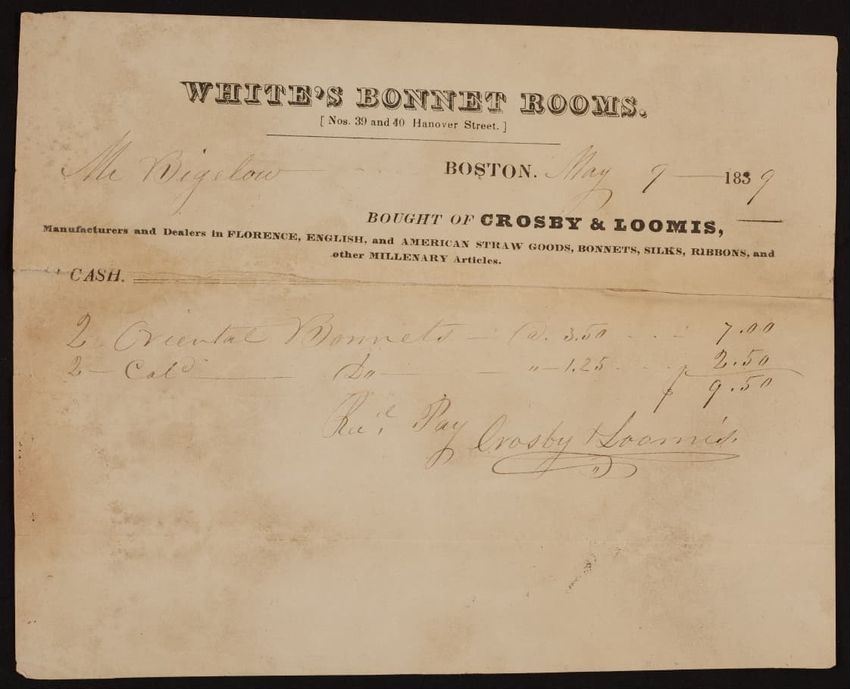 WHITE'S BONNET ROOMS.
[ Nos. 39 and 40 Hanover Street. ]
Mr Bigelow BOSTON. May 9 1839
BOUGHT OF CROSBY & LOOMIS,
Manufacturers and Dealers in FLORENCE, ENGLISH, and AMERICAN STRAW GOODS, BONNETS, SILKS, RIBBONS, and
other MILLENARY Articles.
CASH.
2 Oriental Bonnets — @. 3.50 7.00
2 — Cold Do — " — 1.25 2.50
$ 9.50
Rec'd Pay Crosby & Loomis